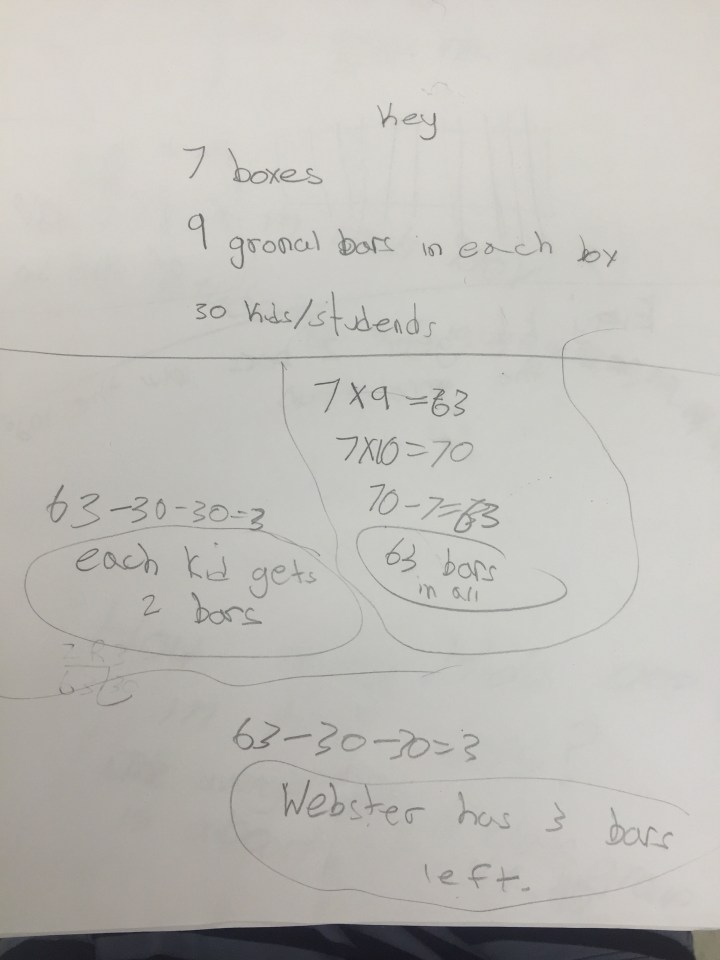 Key
7 boxes
9 gronal bars in each box
30 kids/studends
7x9=63
7x10=70
70-7=63
63 bars
in all
63-30-30=3
each kid gets
2 bars
63-30-30=3
Webster has 3 bars
left.